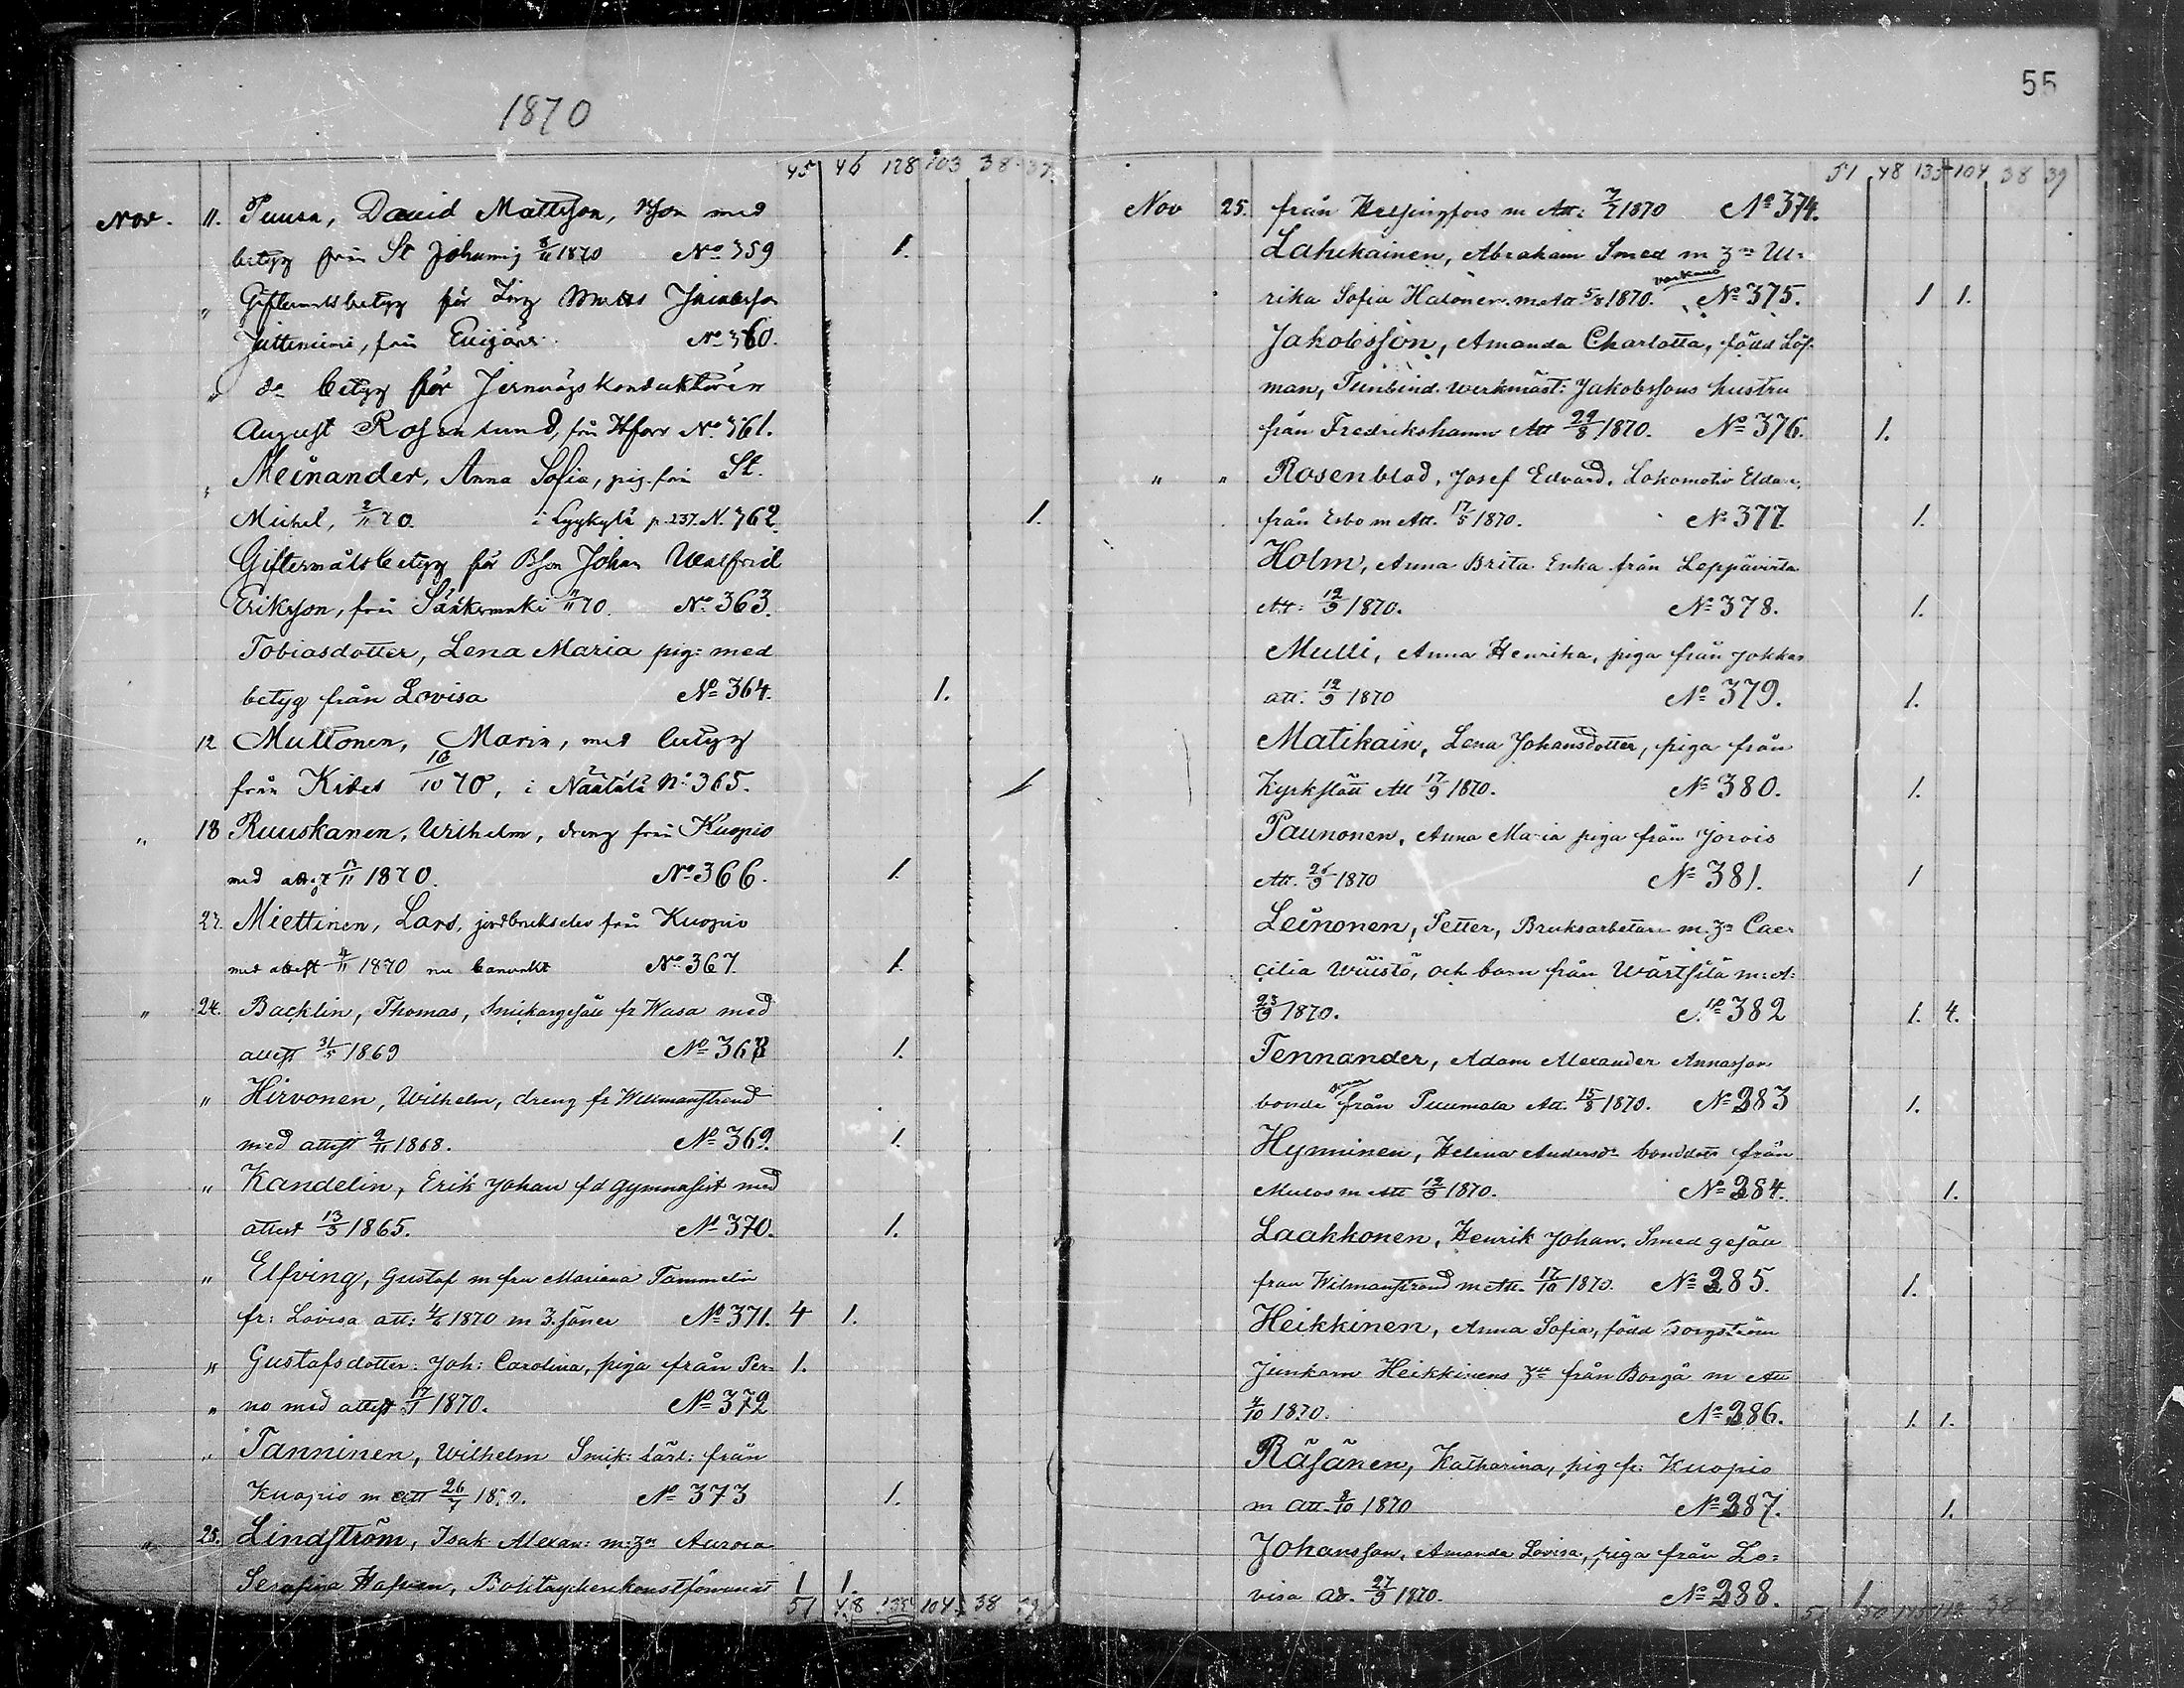 55
1870
45 46 128 103 38 37.
Nov. 11. Puusa, David Mattsson, med
betyg från St Johannis 8/11 1870 No 359 1.
" Giftermålsbetyg för Matts
från No 360.
" do betyg för Jernvägskonduktören
August Rosenlund, från Hfors No 361.
" Meinander, Anna Sofia, pig. från St.
Michel, 2/11 70. i Lyykylä p. 237. N. 362. 1.
Giftermålsbetyg för Bson Johan Walfrid
Eriksson, från Säkkmäki 11/11 70. No 363.
Tobiasdotter, Lena Maria pig: med
betyg från Lovisa No 364. 1.
12 Muttonen, Maria, med betyg
från Kides 16/10 70, i Näätälä No 365. 1
" 18 Ruuskanen, Wilhelm, dreng från Kuopio
med 17/11 1870. No 366. 1.
23. Miettinen, Lars, jordbrukselev från Kuopio
med attest 4/11 1870 No 367. 1.
" 24. Backlin, Thomas, Snickargesäll fr Wasa med
attest 31/5 1869 No 368 1.
" Hirvonen, Wilhelm, dreng fr Wilmanstrand
med attest 9/11 1868. No 369. 1.
" Kandelin, Erik Johan fd gymnasist med
attest 13/3 1865. No 370. 1.
" Elfving, Gustaf m fru Mariana Tammelin
fr: Lovisa att: 4/6 1870 m 3. söner No 371. 4 1.
" Gustafsdotter: Joh: Carolina, piga från Per= 1.
" no med attest 17/1 1870. No 372
" Tanninen, Wilhelm Snik: lärl: från
Kuopio m att 26/7 1870. No 373 1.
" 25. Lindström, Isak Alexan: m: Aurora
Serafina 1 1.
51 48 135 104 38 39
51 48 135 104 38 39
Nov 25. från Helsingfors m Att: 7/7 1870 No 374.
Lahikainen, Abraham Smed m Ul=
rika Sofia Halonen m Att 5/8 1870. No 375. 1 1.
Jakobsson, Amanda Charlotta, född Löf-
man, Tunbind. werkmäst: Jakobssons hustru
från Fredrikshamn Att 29/8 1870. No 376. 1.
" " Rosenblad, Josef Edvard, Lokomotiv Eldare,
från Esbo m Att. 17/5 1870. No 377. 1.
Holm, Anna Brita Enka från Leppävirta
Att: 12/9 1870. No 378. 1.
Mulli, Anna Henrika, piga från Jokkas
att: 12/9 1870 No 379. 1.
Matikain, Lena Johansdotter, piga från
Kyrkslätt Att 17/9 1870. No 380. 1.
Paunonen, Anna Maria piga från Jorois
Att. 26/9 1870 No 381. 1
Leinonen, Petter, Bruksarbetare m. Cae=
cilia och barn från Wärtsilä m: A:
23/9 1870. No 382 1. 4.
Tennander, Adam Alexander Annasson
bonde son från Puumala Att. 15/8 1870. No 383 1.
Hynninen, Helena Andersdr bonddotr från
m Att 12/9 1870. No 384. 1.
Laakkonen, Henrik Johan. Smed gesäll
från Wilmanstrand m Att. 17/10 1870. No 385. 1.
Heikkinen, Anna Sofia, född Borgström
Heikkinens från Borgå m Att
4/10 1870. No 386. 1. 1.
Räsänen, Katharina, pig fr. Kuopio
m Att. 8/10 1870 No 387. 1.
Johansson, Amanda Lovisa, piga från Lo=
visa Att. 27/9 1870. No 388. 1